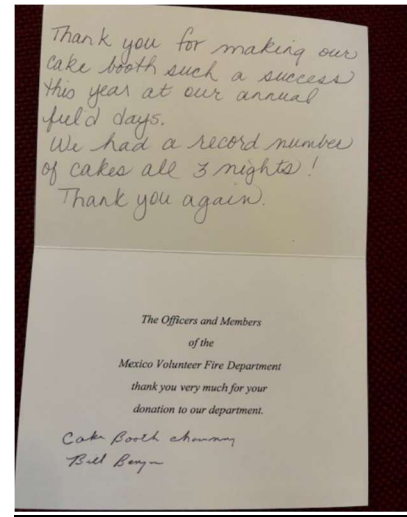 Thank you for making our
cake booth such a success
this year at our annual
field days.
We had a record number
of cakes all 3 nights!
Thank you again.
The Officers and Members
of the
Mexico Volunteer Fire Department
thank you very much for your
donation to our department.
Cake Booth
Bill